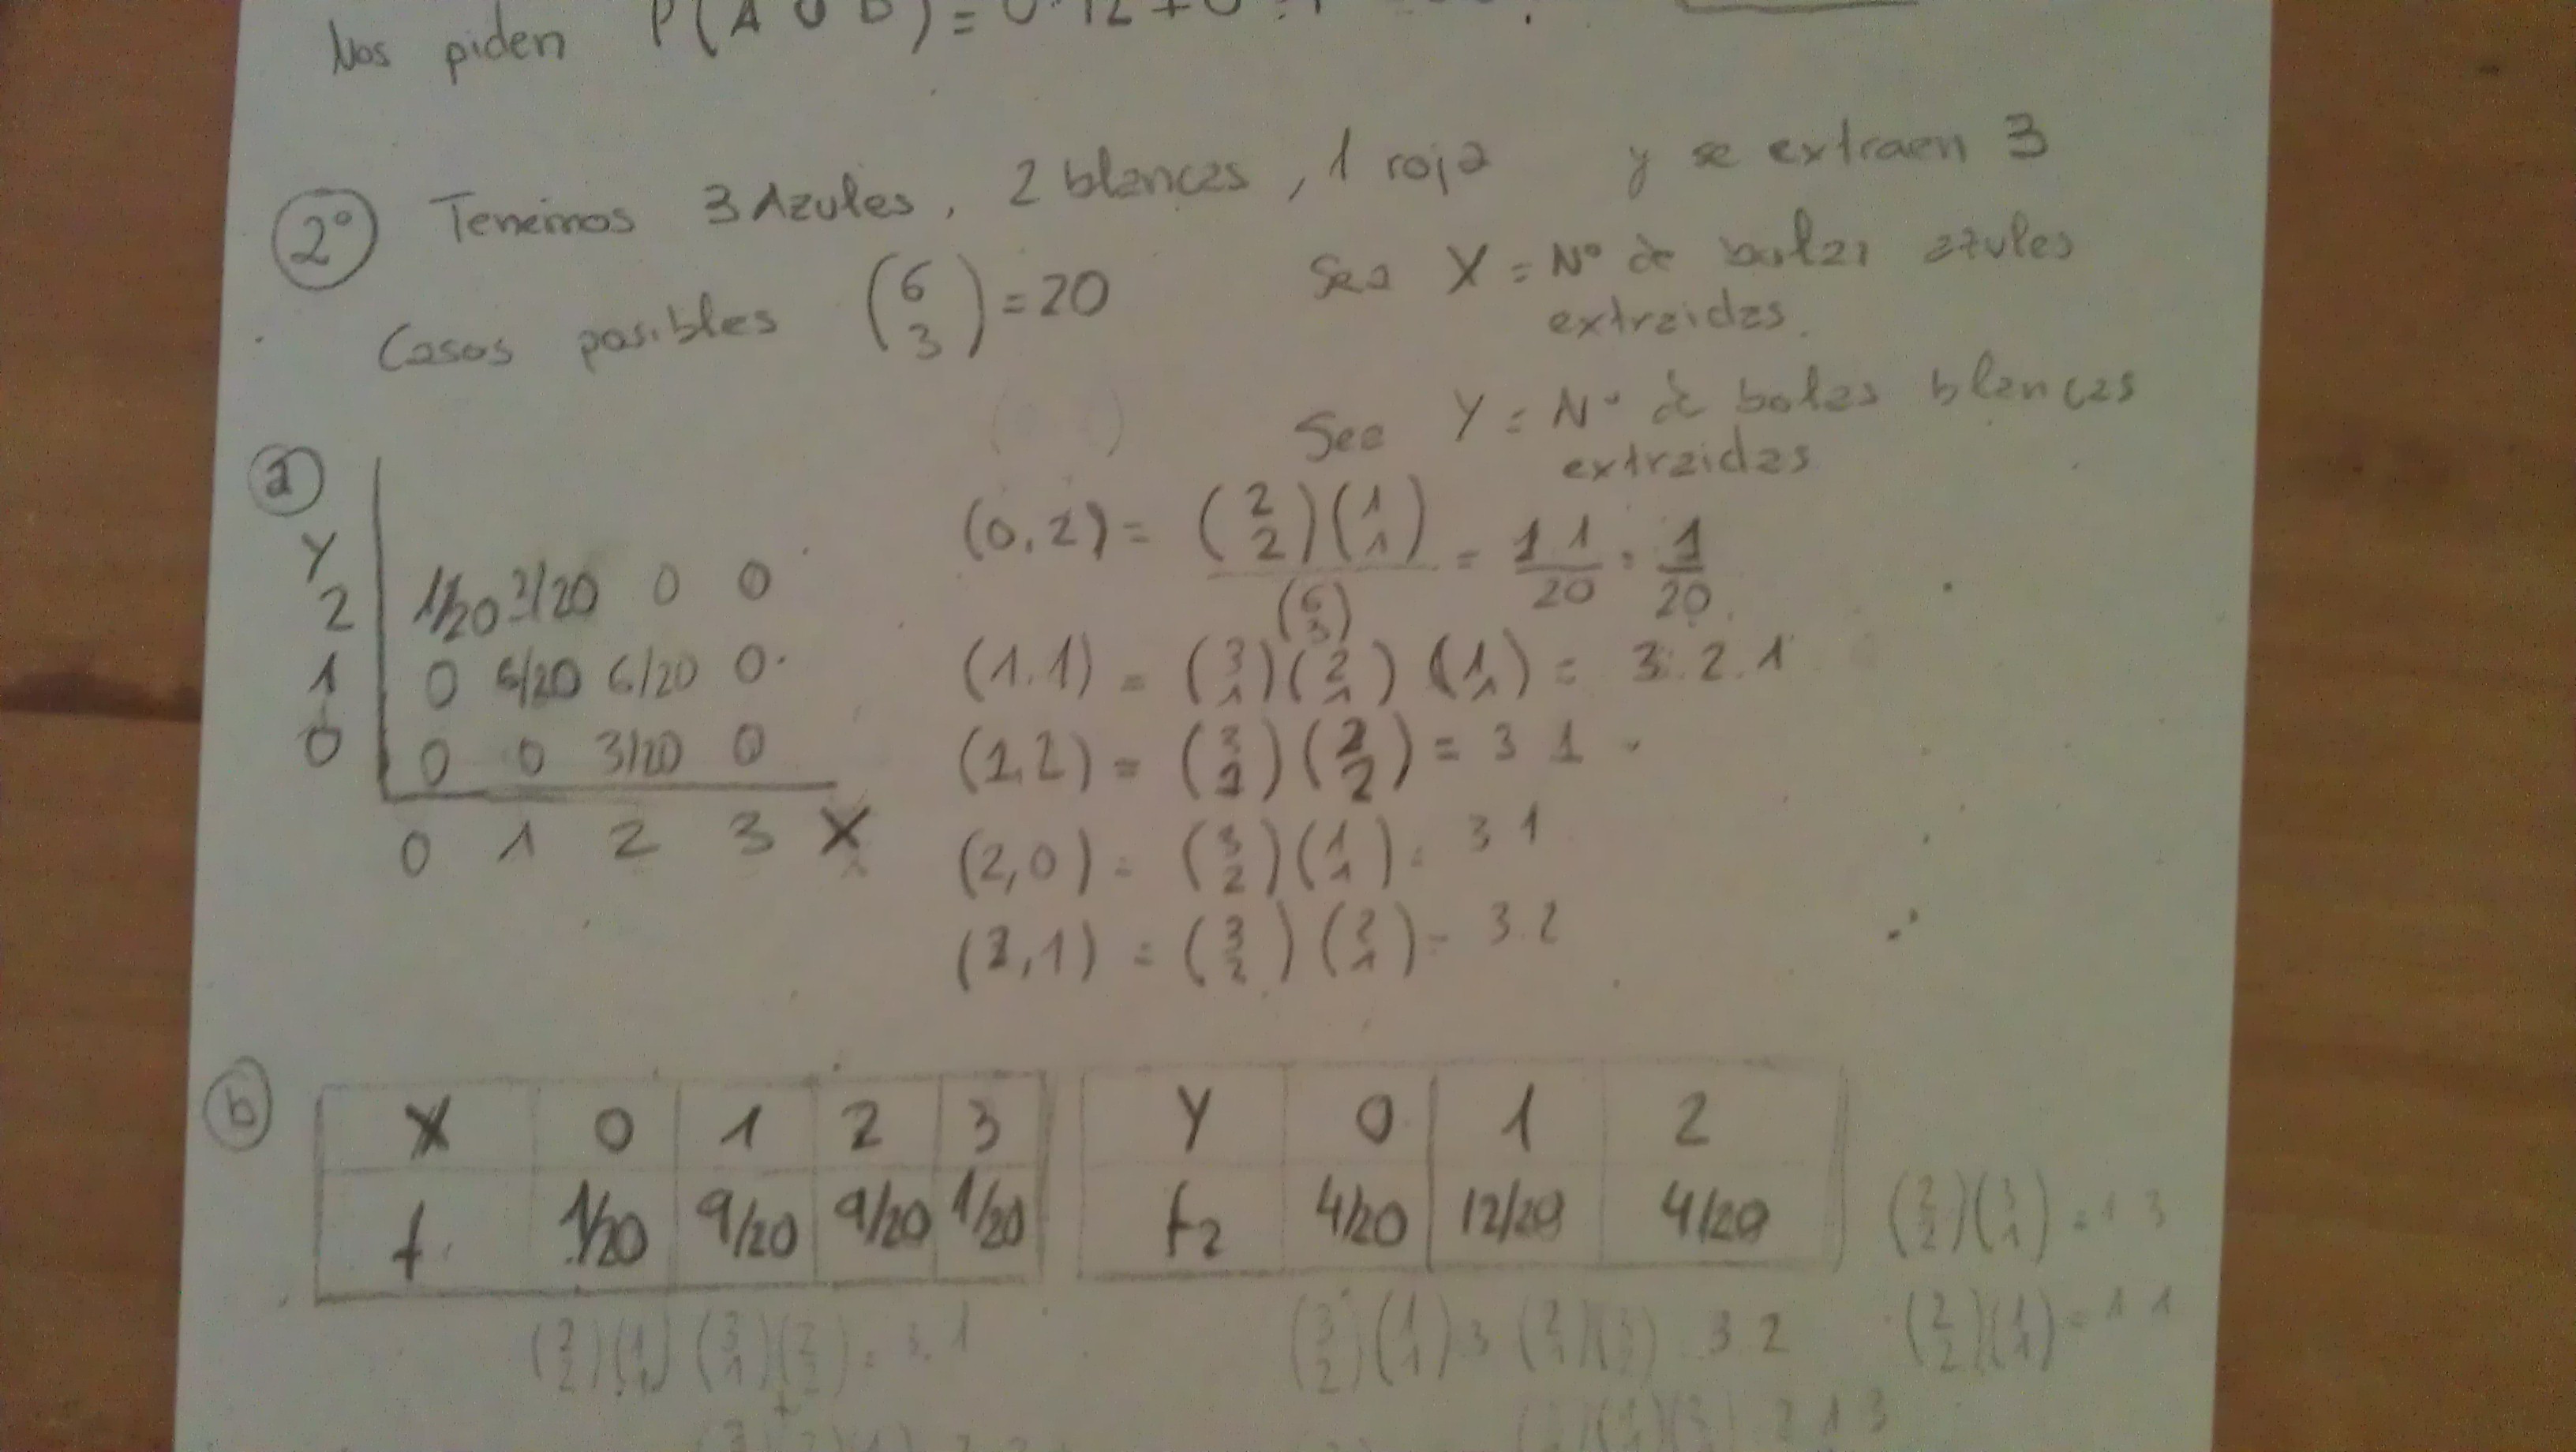 Nos piden P(A U B) = 0.12 + 0
2º Tenemos 3 Azules, 2 blancas, 1 roja y se extraen 3
Casos posibles (6 3) = 20
Sea X = Nº de bolas azules
extraidas.
Sea Y = Nº de bolas blancas
extraidas
a
Y
2 1/20 3/20 0 0
1 0 6/20 6/20 0
0 0 0 3/20 0
0 1 2 3 X
(0,2) = (2 2)(1 1) / (6 3) = 1 1 / 20 = 1 / 20
(1,1) = (3 1)(2 1)(1 1) = 3.2.1
(1,2) = (3 1)(2 2) = 3 1
(2,0) = (3 2)(1 1) = 3 1
(2,1) = (3 2)(2 1) = 3.2
b
X 0 1 2 3
f 1/20 9/20 9/20 1/20
Y 0 1 2
f2 4/20 12/20 4/20
(2 2)(3 1) = 1 3
(2 2)(1 1) (3 1)(2 2) = 3.1
(3 2)(1 1) 3 (2 1)(3 2) 3 2
(2 2)(1 1) = 1 1
2 1 3